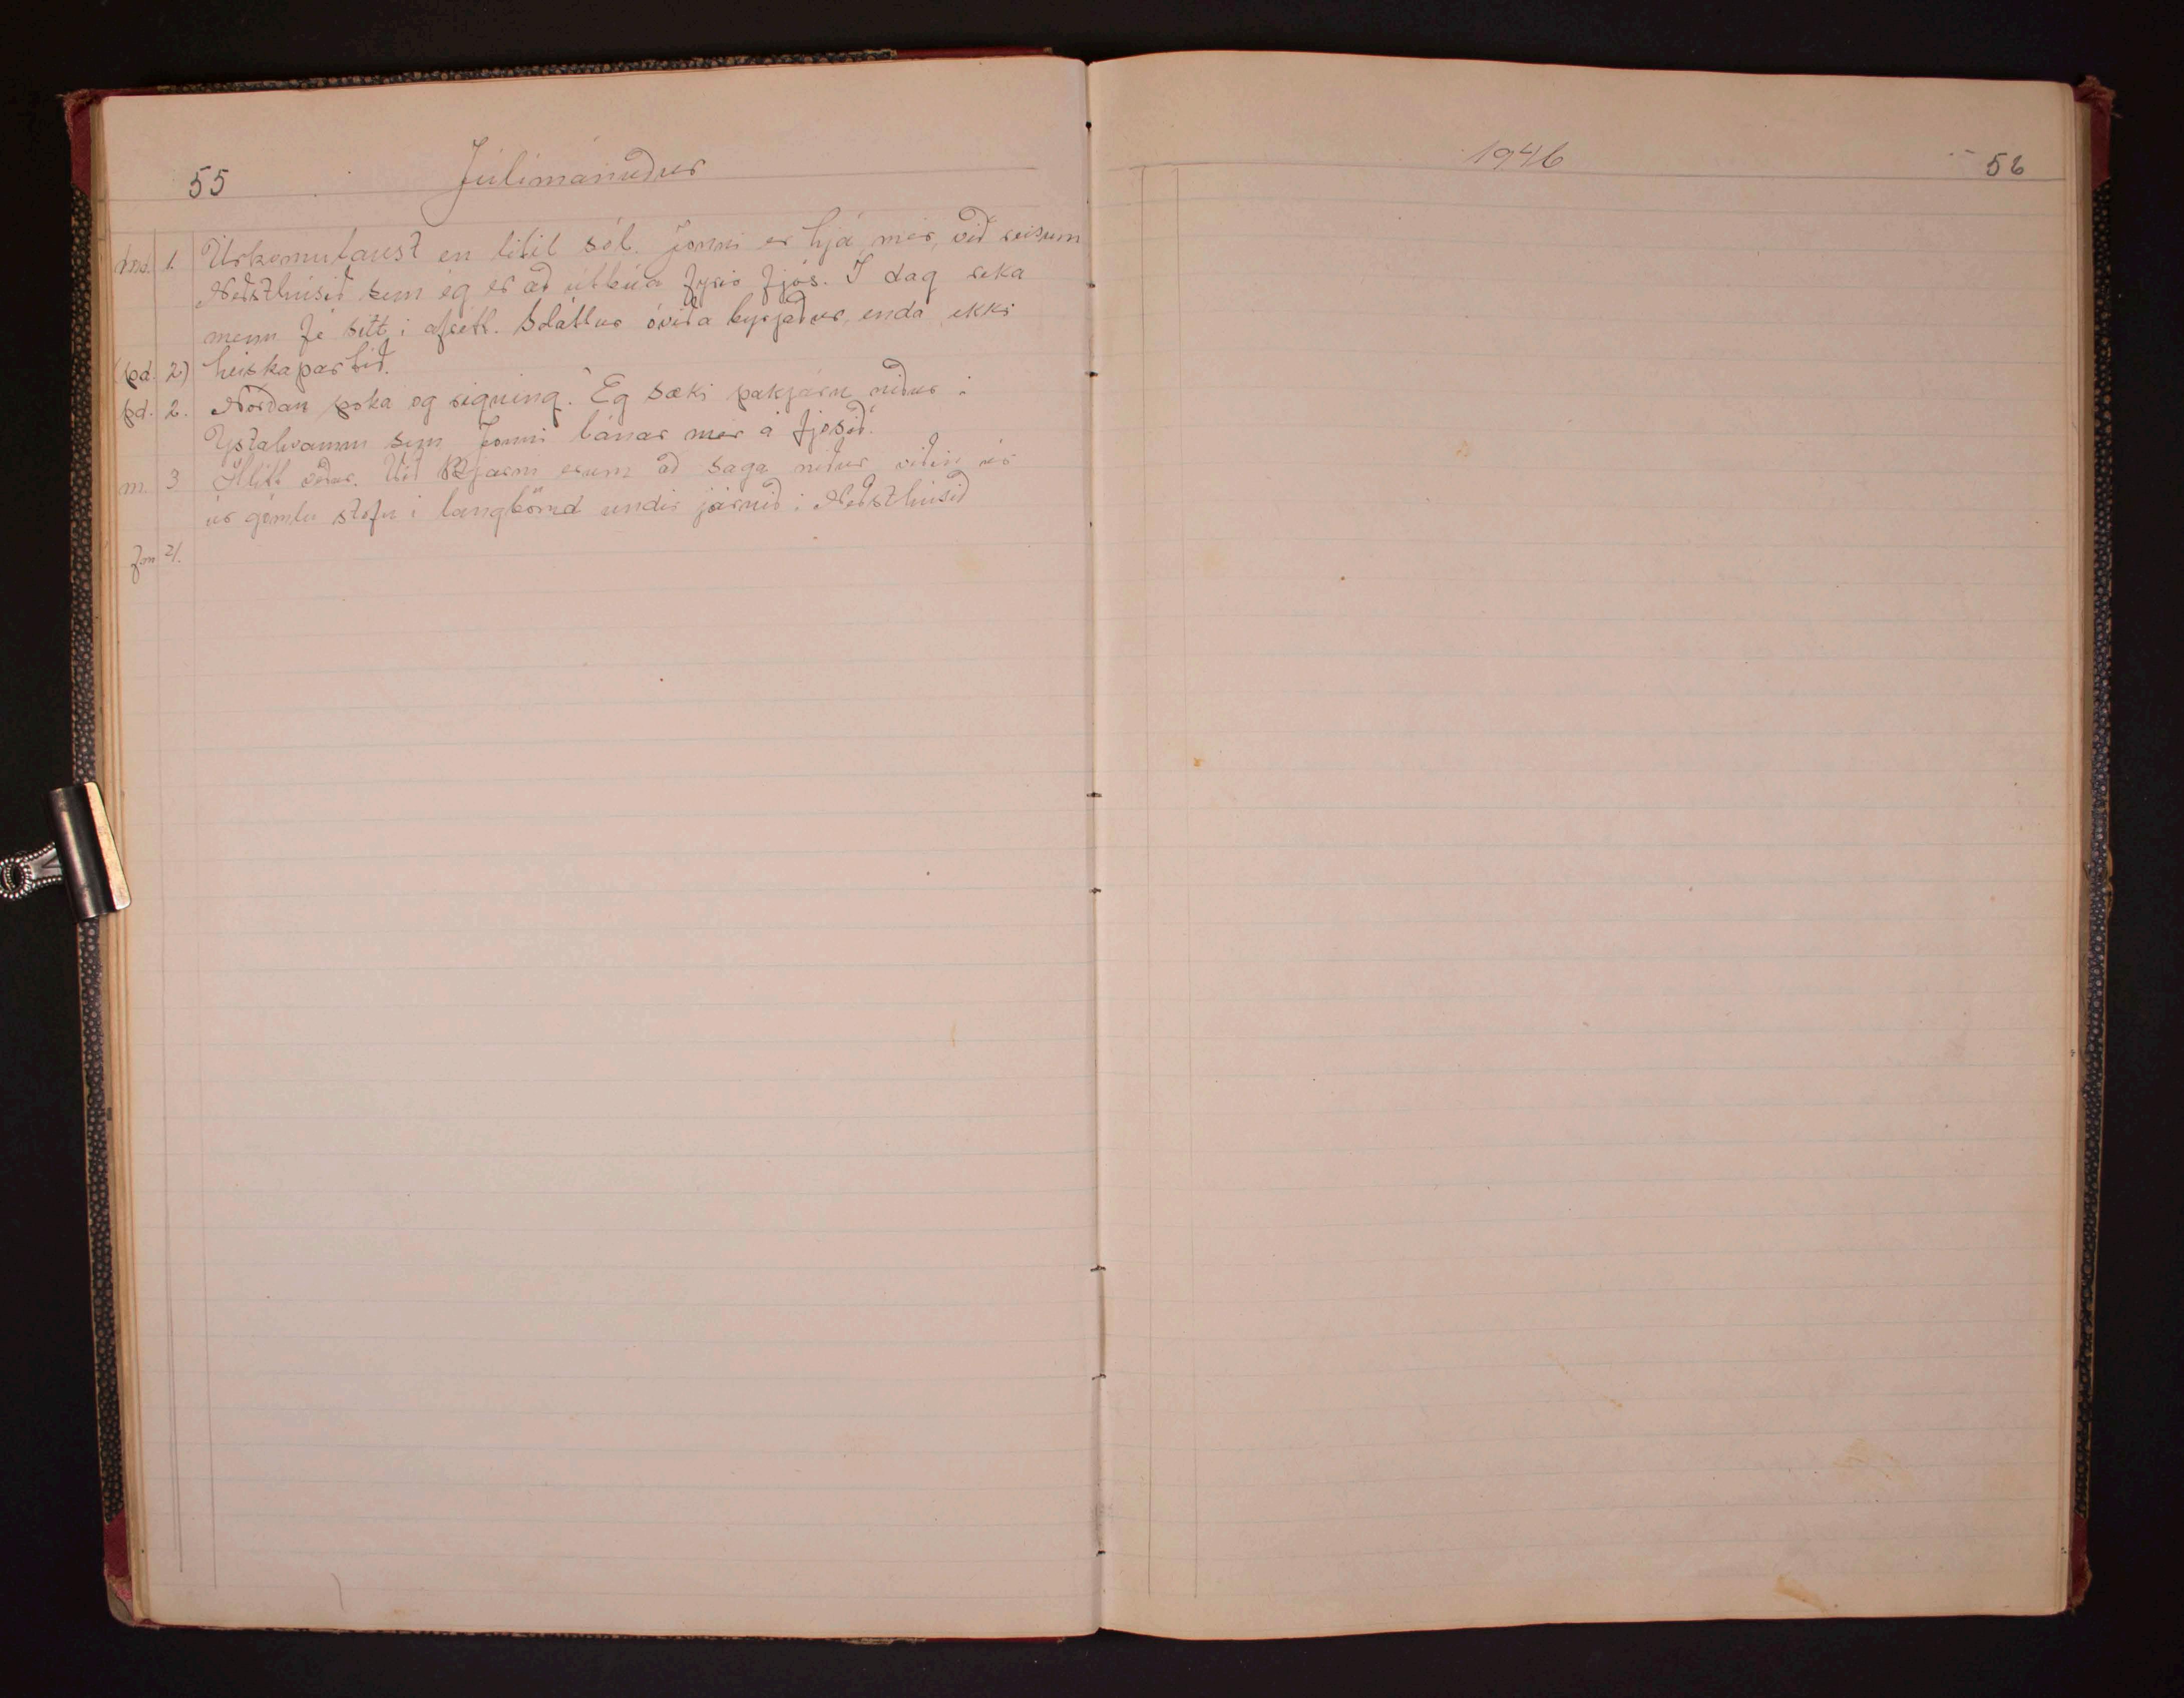 55 Júlímánuður
1946 56
md. 1. Úrkomulaust en lítil sól. Jonni er hjá mér, við reisum
Neðsthúsið sem ég er að útbúa fyrir fjós. Í dag reka
menn fé sitt í afrétt. Sláttur óvíða byrjaður, enda ekki
(þd. 2) heiskaparlið.
þd. 2. Norðan þoka og rigning. Eg sæki þakjárn niður í
Ystahvamm sem Jonni lánar mér á fjósið.
m. 3 Hlítt veður. Við Bjarni erum að saga niður viðin úr
úr gömlu stofu í langbönd undir járnið í Neðsthúsið
fm 4.